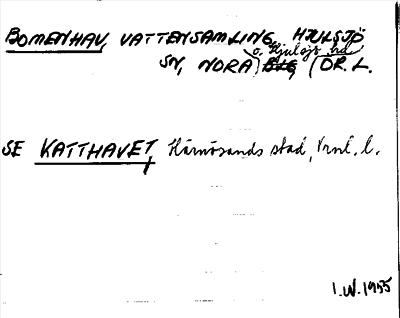 BOMENHAV, VATTENSAMLING, HJULSJÖ
o. Hjulsjö hd
SN, NORA, (ÖR. L.
SE KATTHAVET, Härnösands stad, Vrnl. l.
I.W. 1955